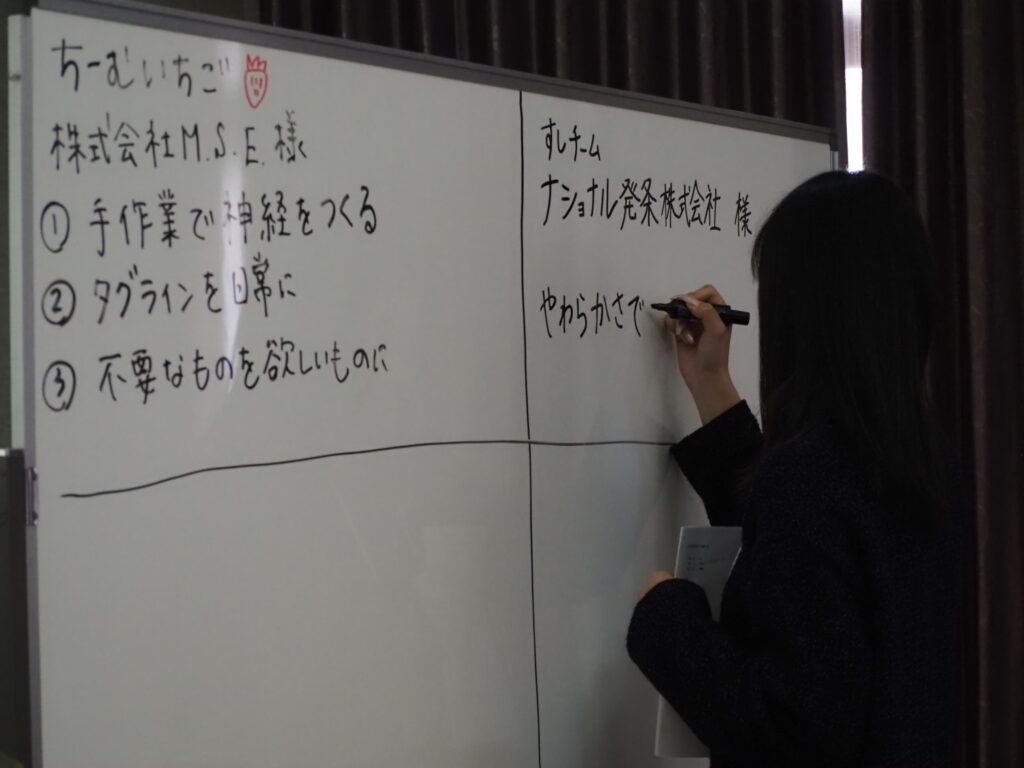 ちーむいちご
株式会社M.S.E.様
① 手作業で神経をつくる
② タグラインを日常に
③ 不要なものを欲しいものに
すしチーム
ナショナル発条株式会社 様
やわらかさで